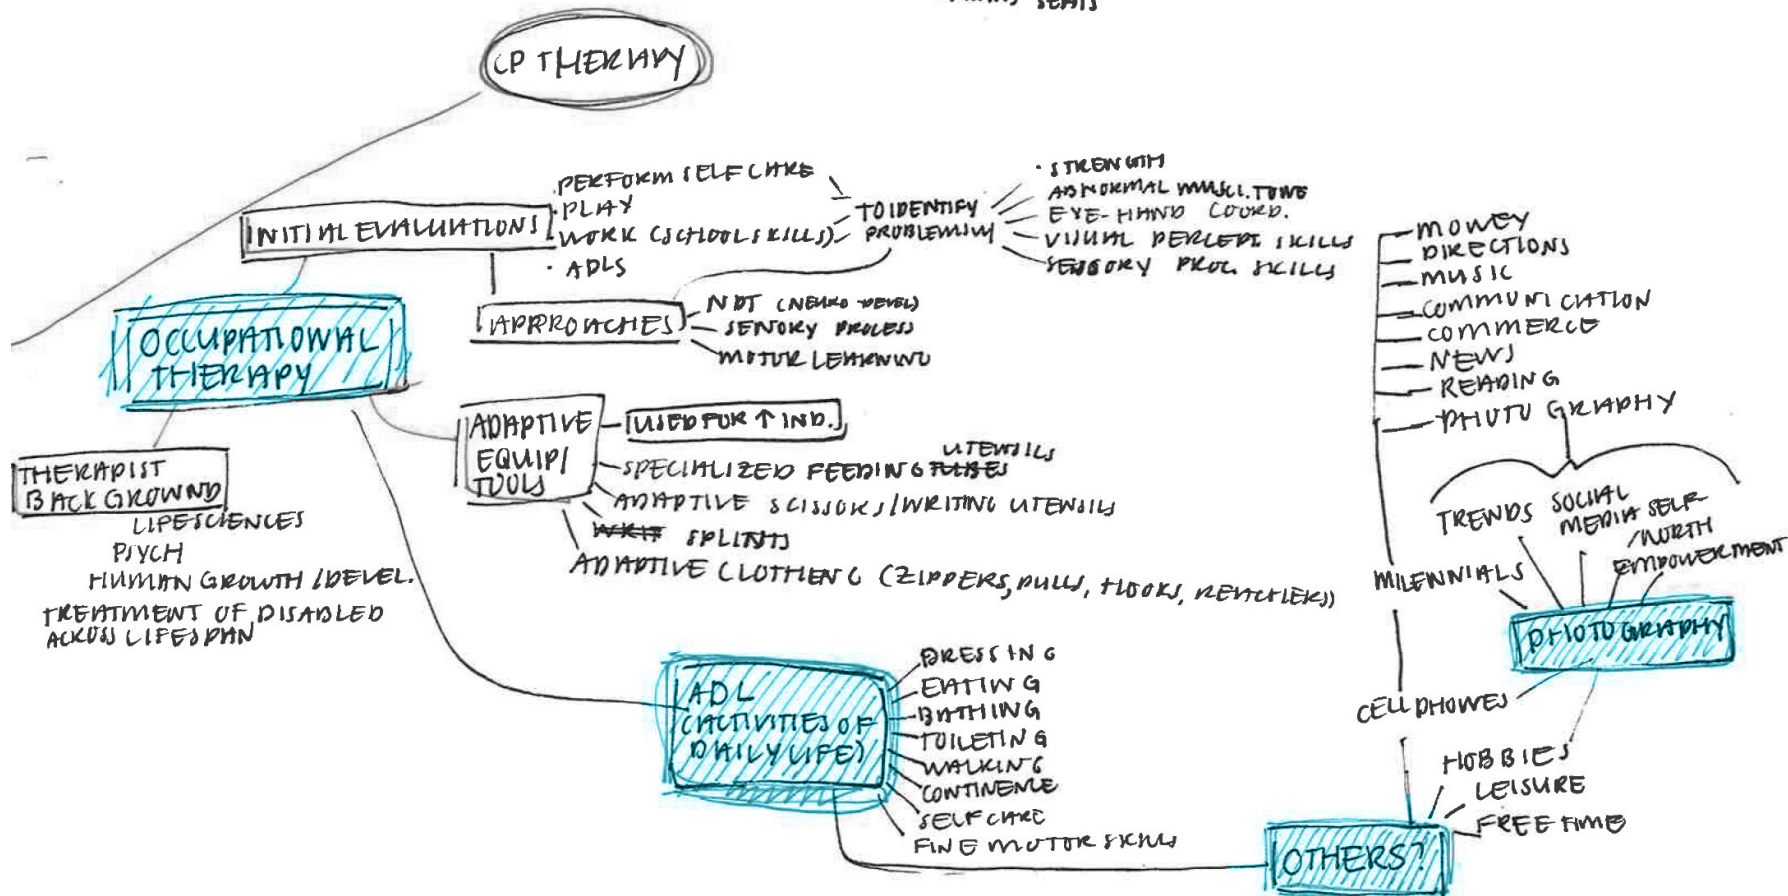 SEATS
CP THERAPY
INITIAL EVALUATIONS
· PERFORM SELF CARE
· PLAY
· WORK (SCHOOL SKILLS)
· ADLS
TO IDENTIFY
PROBLEMS W/
· STRENGTH
ABNORMAL MUSCL. TONE
EYE-HAND COORD.
VISUAL PERCEPT SKILLS
SENSORY PROC. SKILLS
APPROACHES
NDT (NEURO-DEVEL)
SENSORY PROCESS
MOTOR LEARNING
OCCUPATIONAL
THERAPY
THERAPIST
BACKGROUND
LIFE SCIENCES
PSYCH
HUMAN GROWTH / DEVEL.
TREATMENT OF DISABLED
ACROSS LIFESPAN
ADAPTIVE
EQUIP/
TOOLS
USED FOR ↑ IND.
UTENSILS
SPECIALIZED FEEDING TUBES
ADAPTIVE SCISSORS / WRITING UTENSILS
SPLINTS
ADAPTIVE CLOTHING (ZIPPERS, PULLS, HOOKS, REACHERS)
ADL
(ACTIVITIES OF
DAILY LIFE)
DRESSING
EATING
BATHING
TOILETING
WALKING
CONTINENCE
SELF CARE
FINE MOTOR SKILLS
OTHERS?
HOBBIES
LEISURE
FREE TIME
MONEY
DIRECTIONS
MUSIC
COMMUNICATION
COMMERCE
NEWS
READING
PHOTOGRAPHY
TRENDS
SOCIAL
MEDIA
SELF
/WORTH
EMPOWERMENT
MILENNIALS
PHOTOGRAPHY
CELL PHONES